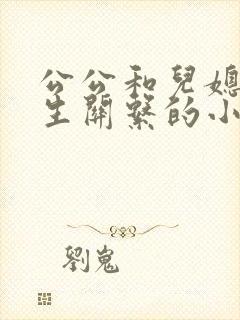 公公和兒媳
生關繫的小
劉嵬